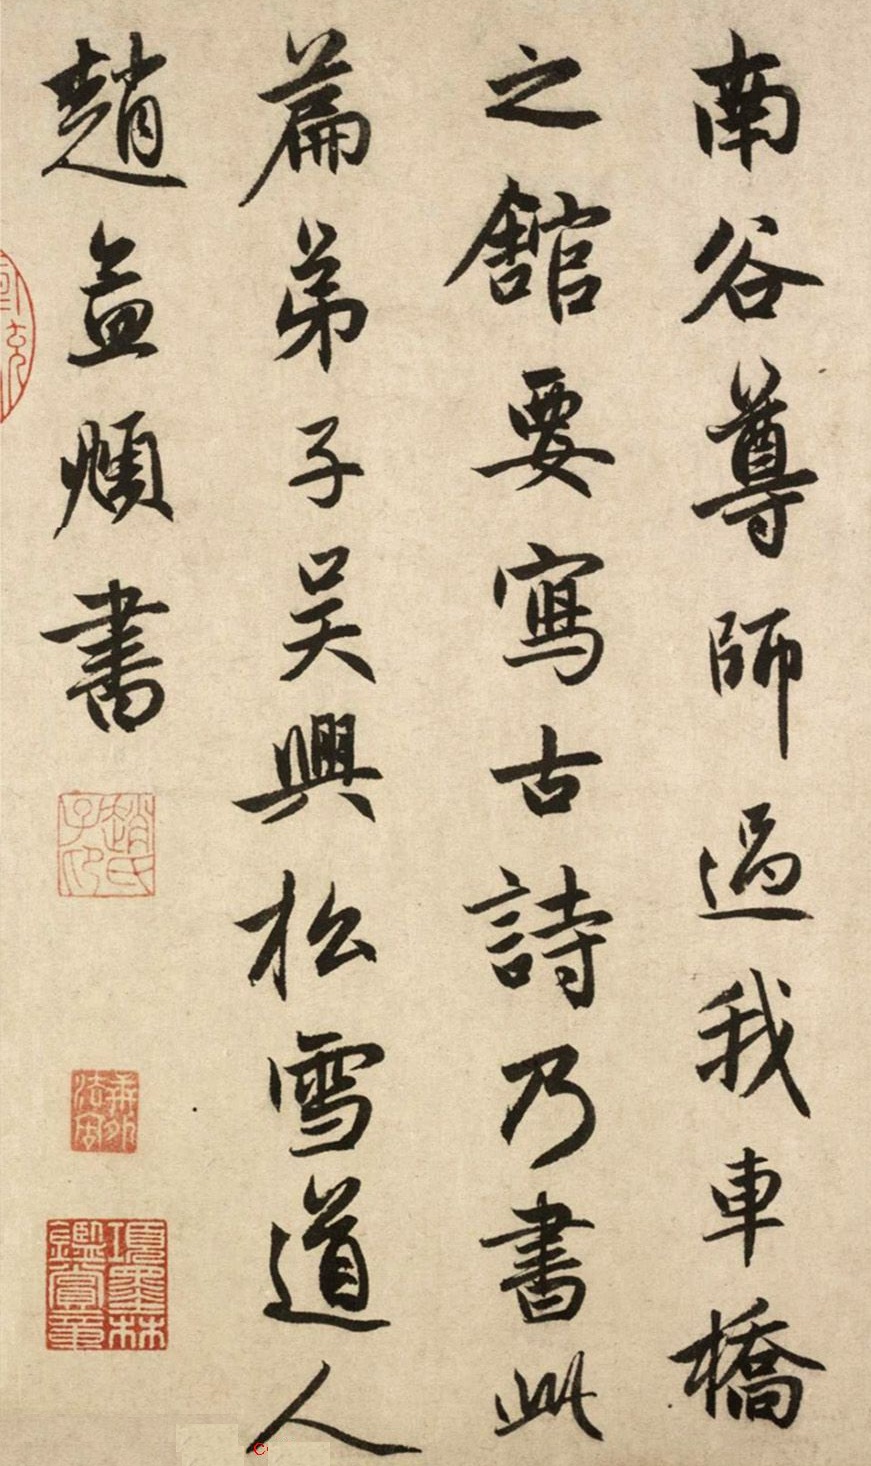 南谷尊師過我車橋
之舘要寫古詩乃書此
篇弟子吳興松雪道人
趙孟頫書
趙氏子昂
項墨林鑑賞章
©